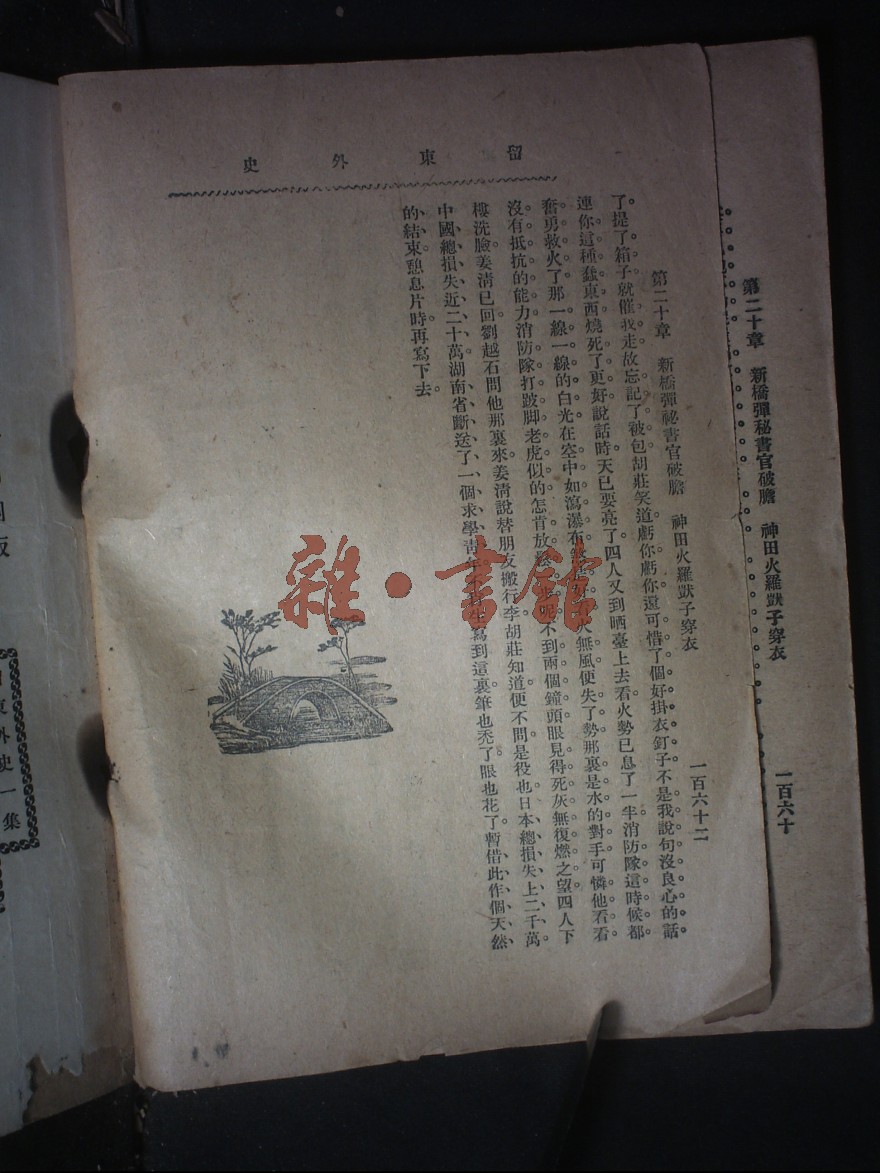 留東外史
第二十章　新橋彈秘書官破膽　神田火羅獃子穿衣
一百六十二
了提了箱子就催我走故忘記了被包胡莊笑道虧你虧你還可惜了個好掛衣釘子不是我說句沒良心的話
連你這種蠢東西燒死了更好說話時天已要亮了四人又到晒臺上去看火勢已息了一半消防隊這時候都
奮勇救火了那一線一線的白光在空中如瀉瀑布 火無風便失了勢那裏是水的對手可憐他看看
沒有抵抗的能力消防隊打跛脚老虎似的怎肯放鬆 不到兩個鐘頭眼見得死灰無復燃之望四人下
樓洗臉姜清已回劉越石問他那裏來姜清說替朋友搬行李胡莊知道便不問是役也日本總損失上二千萬
中國總損失近二十萬湖南省斷送了一個求學青年 寫到這裏筆也禿了眼也花了暫借此作個天然
的結束憩息片時再寫下去。
第二十章　新橋彈秘書官破膽　神田火羅獃子穿衣
一百六十
東外史一集
版
雜·書館